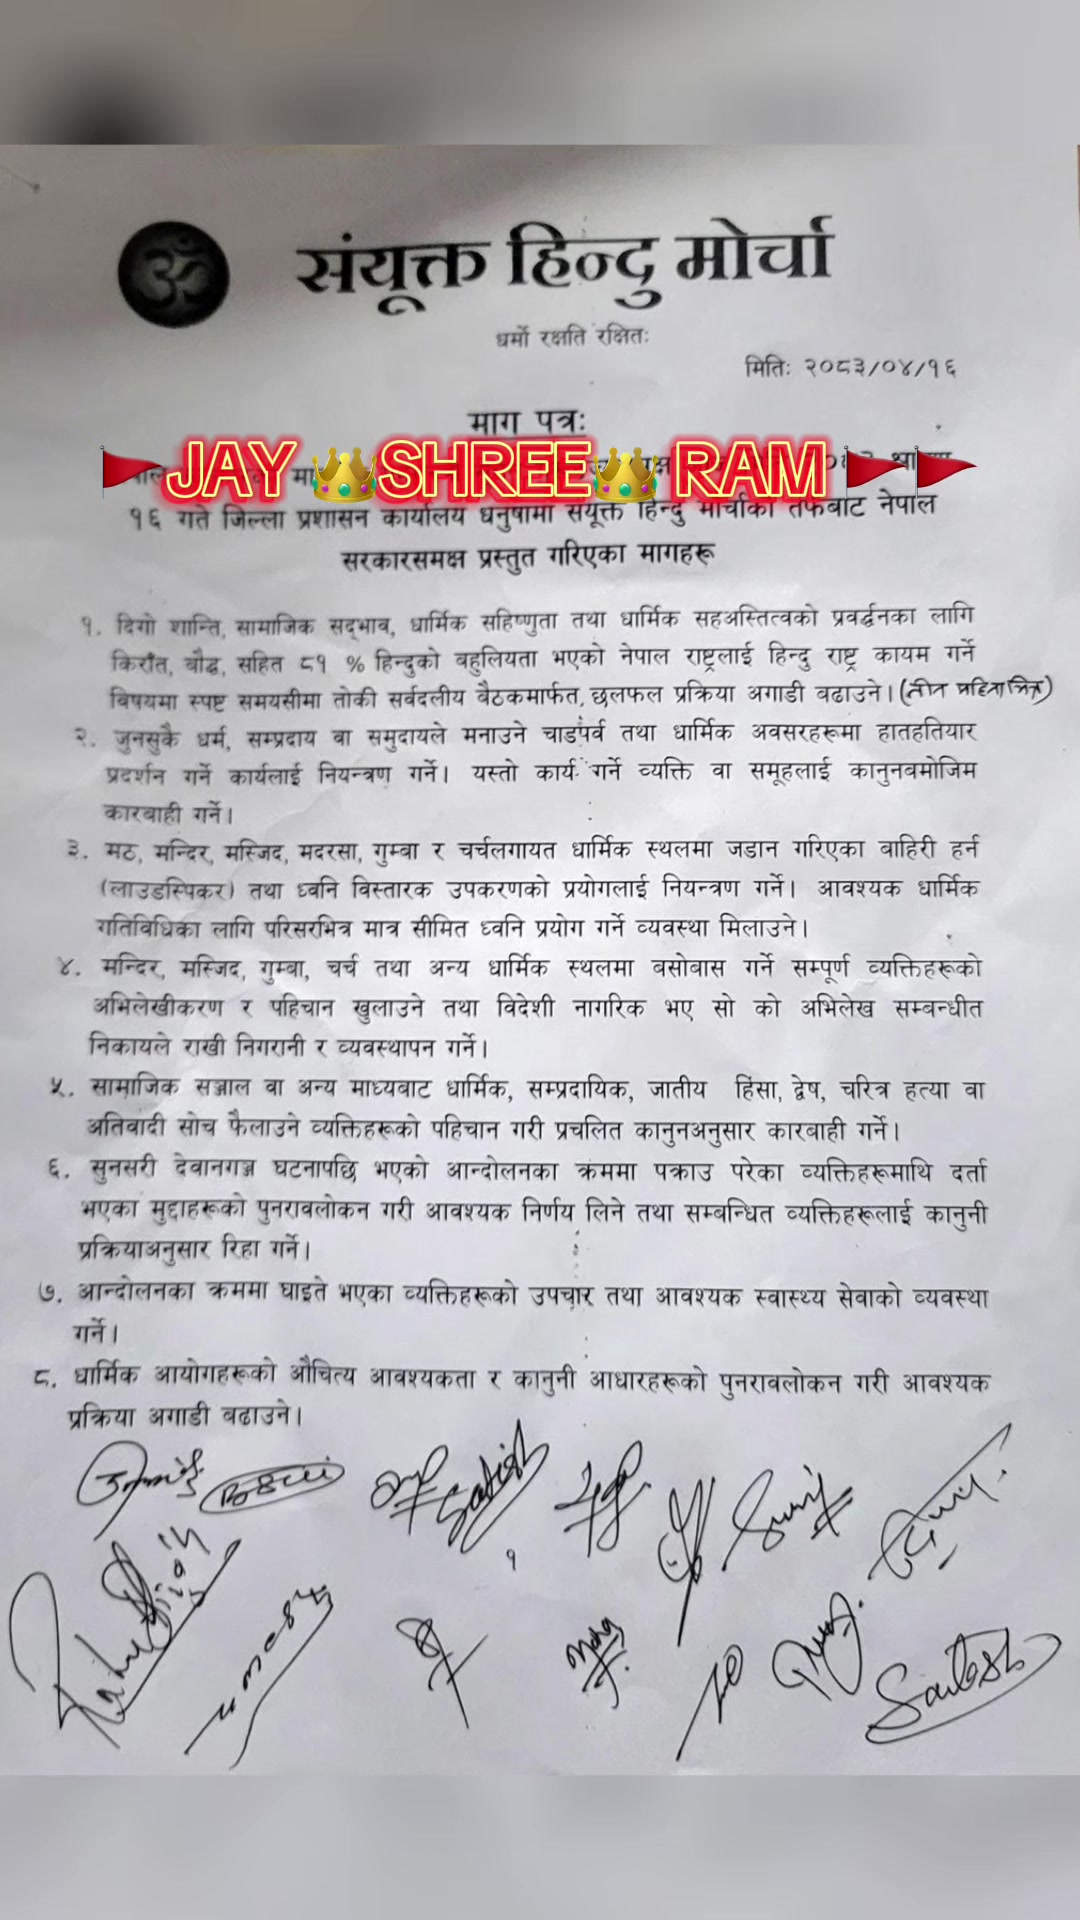 ॐ
संयूक्त हिन्दु मोर्चा
धर्मो रक्षति रक्षितः
मितिः २०८३/०४/१६
माग पत्रः
🚩JAY 👑SHREE👑 RAM🚩🚩
१६ गते जिल्ला प्रशासन कार्यालय धनुषामा संयूक्त हिन्दु मोर्चाको तर्फबाट नेपाल
सरकारसमक्ष प्रस्तुत गरिएका मागहरू
१. दिगो शान्ति, सामाजिक सद्भाव, धार्मिक सहिष्णुता तथा धार्मिक सहअस्तित्वको प्रवर्द्धनका लागि
किराँत, बौद्ध, सहित ८१ % हिन्दुको बहुलियता भएको नेपाल राष्ट्रलाई हिन्दु राष्ट्र कायम गर्ने
विषयमा स्पष्ट समयसीमा तोकी सर्वदलीय बैठकमार्फत छलफल प्रक्रिया अगाडी बढाउने। (तीन महिनाभित्र)
२. जुनसुकै धर्म, सम्प्रदाय वा समुदायले मनाउने चाडपर्व तथा धार्मिक अवसरहरूमा हातहतियार
प्रदर्शन गर्ने कार्यलाई नियन्त्रण गर्ने। यस्तो कार्य गर्ने व्यक्ति वा समूहलाई कानुनबमोजिम
कारबाही गर्ने।
३. मठ, मन्दिर, मस्जिद, मदरसा, गुम्बा र चर्चलगायत धार्मिक स्थलमा जडान गरिएका बाहिरी हर्न
(लाउडस्पिकर) तथा ध्वनि विस्तारक उपकरणको प्रयोगलाई नियन्त्रण गर्ने। आवश्यक धार्मिक
गतिविधिका लागि परिसरभित्र मात्र सीमित ध्वनि प्रयोग गर्ने व्यवस्था मिलाउने।
४. मन्दिर, मस्जिद, गुम्बा, चर्च तथा अन्य धार्मिक स्थलमा बसोबास गर्ने सम्पूर्ण व्यक्तिहरूको
अभिलेखीकरण र पहिचान खुलाउने तथा विदेशी नागरिक भए सो को अभिलेख सम्बन्धीत
निकायले राखी निगरानी र व्यवस्थापन गर्ने।
५. सामाजिक सञ्जाल वा अन्य माध्यबाट धार्मिक, सम्प्रदायिक, जातीय हिंसा, द्वेष, चरित्र हत्या वा
अतिवादी सोच फैलाउने व्यक्तिहरूको पहिचान गरी प्रचलित कानुनअनुसार कारबाही गर्ने।
६. सुनसरी देवानगञ्ज घटनापछि भएको आन्दोलनका क्रममा पक्राउ परेका व्यक्तिहरूमाथि दर्ता
भएका मुद्दाहरूको पुनरावलोकन गरी आवश्यक निर्णय लिने तथा सम्बन्धित व्यक्तिहरूलाई कानुनी
प्रक्रियाअनुसार रिहा गर्ने।
७. आन्दोलनका क्रममा घाइते भएका व्यक्तिहरूको उपचार तथा आवश्यक स्वास्थ्य सेवाको व्यवस्था
गर्ने।
८. धार्मिक आयोगहरूको औचित्य आवश्यकता र कानुनी आधारहरूको पुनरावलोकन गरी आवश्यक
प्रक्रिया अगाडी बढाउने।
Satish
Santosh